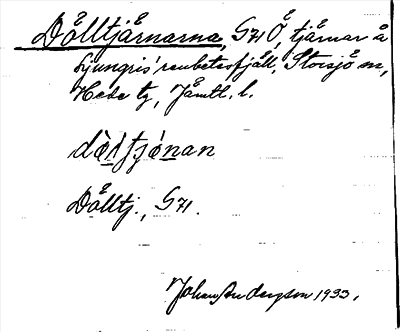 Dålltjärnarna, G71 Ö, tjärnar å
Ljungris' renbetesfjäll, Storsjö sn,
Hede tg, Jämtl. l.
Dålltj., G71.
Johan Andersson 1933.